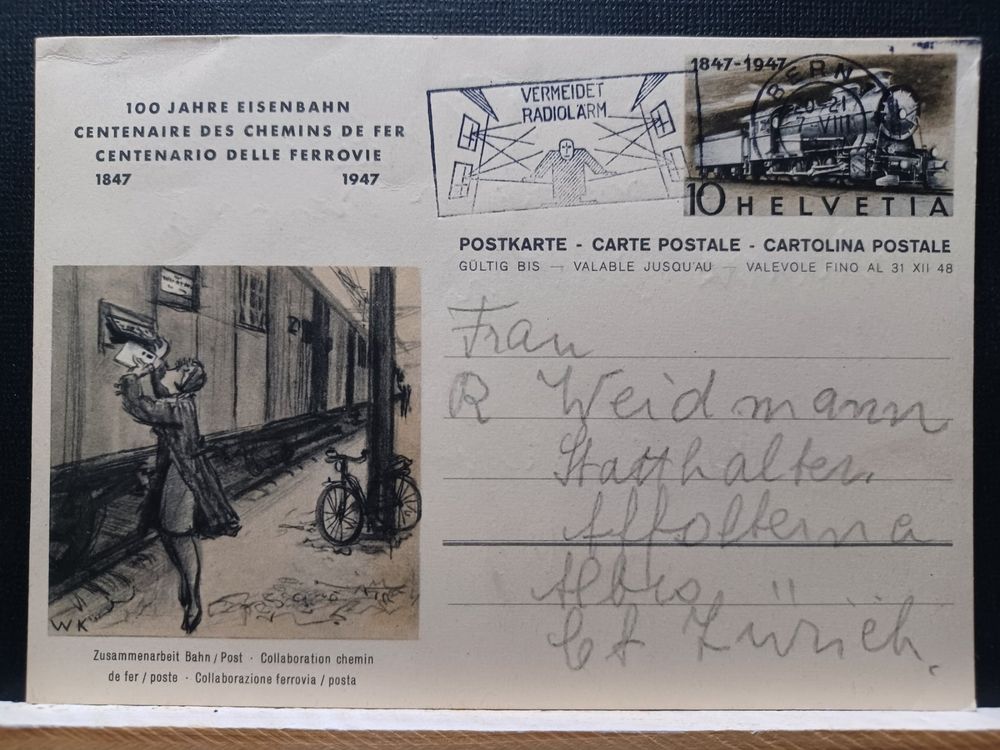 100 JAHRE EISENBAHN
CENTENAIRE DES CHEMINS DE FER
CENTENARIO DELLE FERROVIE
1847 1947
VERMEIDET
RADIOLÄRM
1847-1947
BERN
20-21
7. VIII
10 HELVETIA
POSTKARTE - CARTE POSTALE - CARTOLINA POSTALE
GÜLTIG BIS — VALABLE JUSQU'AU — VALEVOLE FINO AL 31 XII 48
Frau
R Weidmann
Statthalter.
Affoltern a
Albis
Ct Zürich.
WK
Zusammenarbeit Bahn / Post · Collaboration chemin
de fer / poste · Collaborazione ferrovia / posta